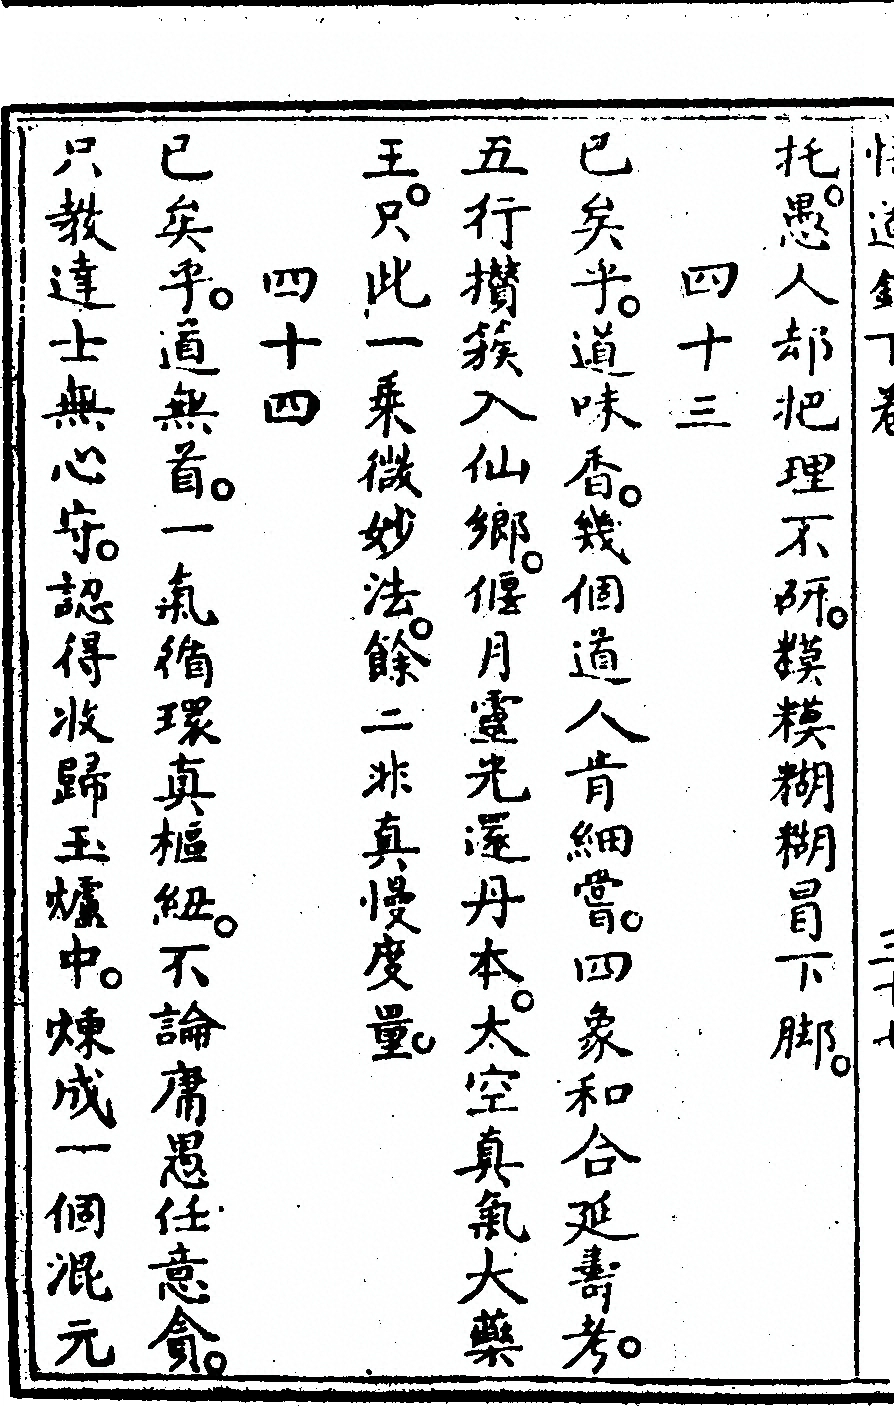 悟道錄下卷 三十七
托。愚人却把理不研。糢糢糊糊冒下脚。
四十三
已矣乎。道味香。幾個道人肯細嘗。四象和合延壽考。
五行攢簇入仙鄉。偃月靈光還丹本。太空真氣大藥
王。只此一乘微妙法。餘二非真慢度量。
四十四
已矣乎。道無首。一氣循環真樞紐。不論庸愚任意貪。
只教達士無心守。認得收歸玉爐中。煉成一個混元